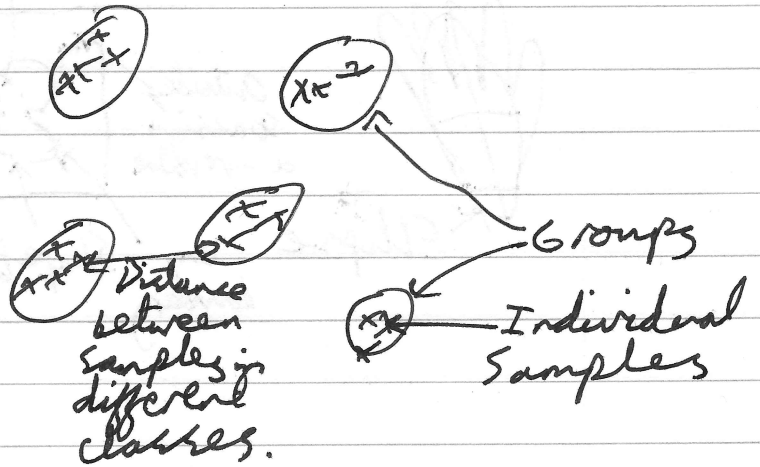 Groups
Individual
Samples
Distance
between
samples in
different
classes.